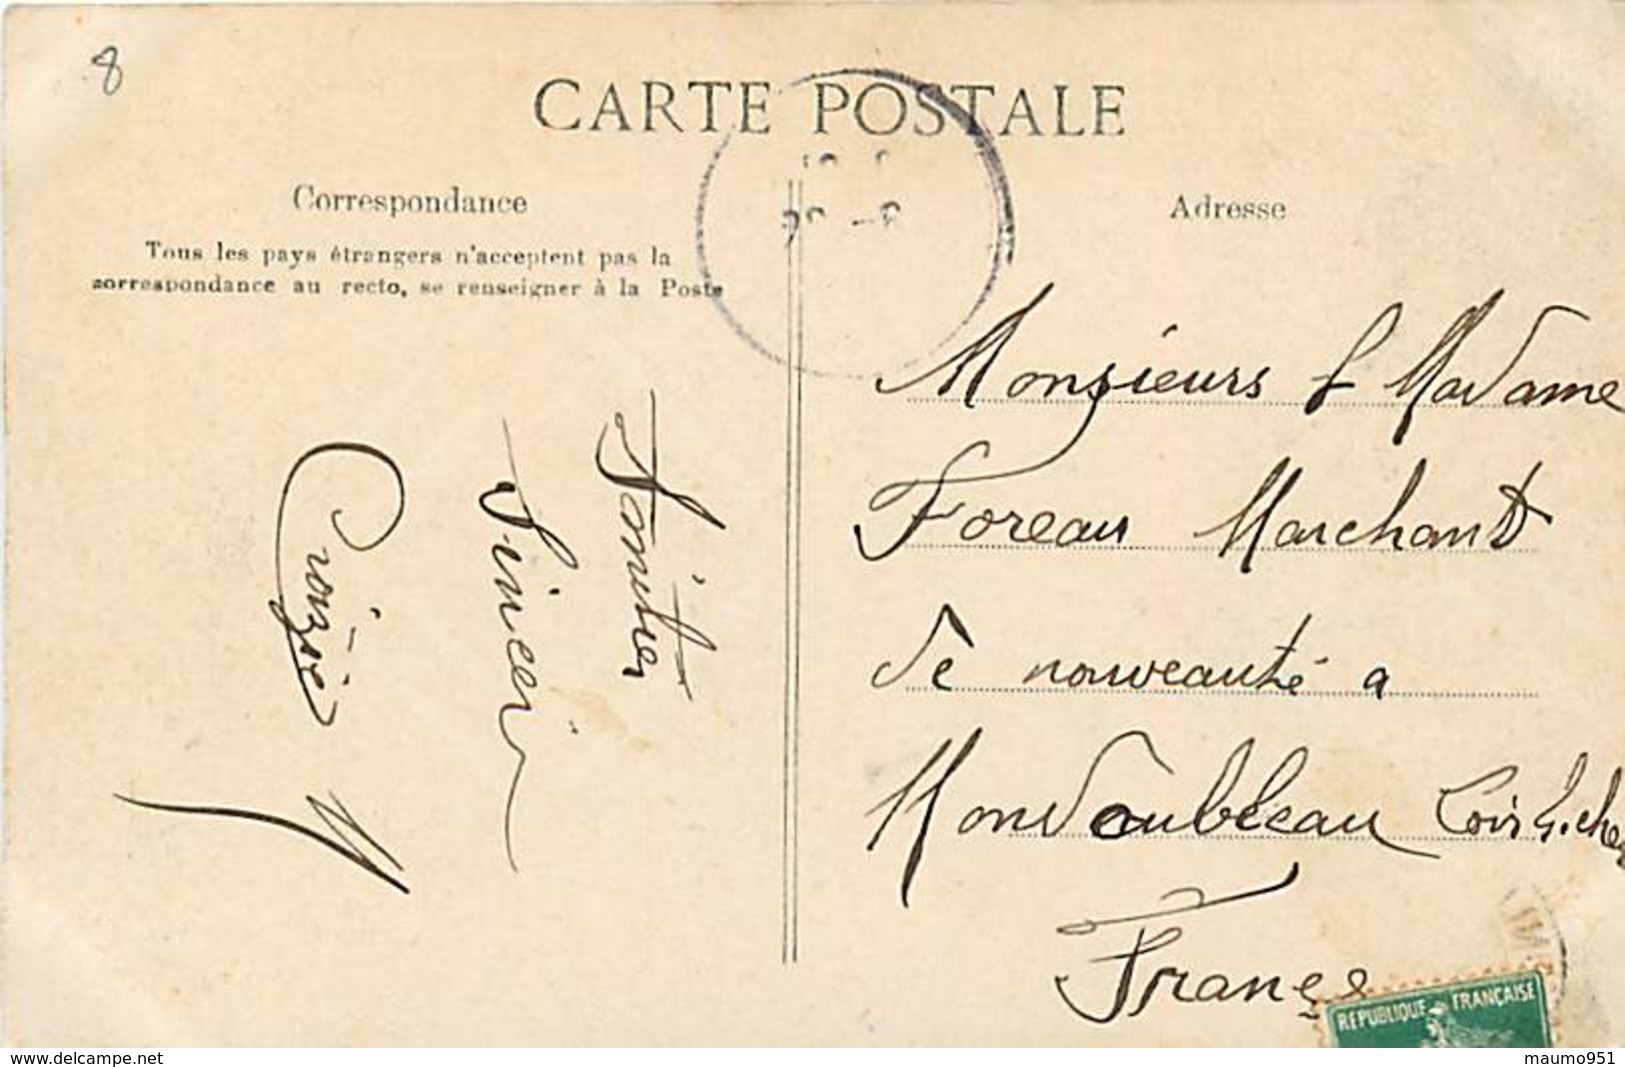 8
CARTE POSTALE
Correspondance
Tous les pays étrangers n'acceptent pas la
correspondance au recto, se renseigner à la Poste
Adresse
Monsieurs & Madame
Foreau Marchant
de nouveauté a
Mondoubleau Loir & cher
France
Amitier
Sinceir
REPUBLIQUE FRANÇAISE
www.delcampe.net
maumo951